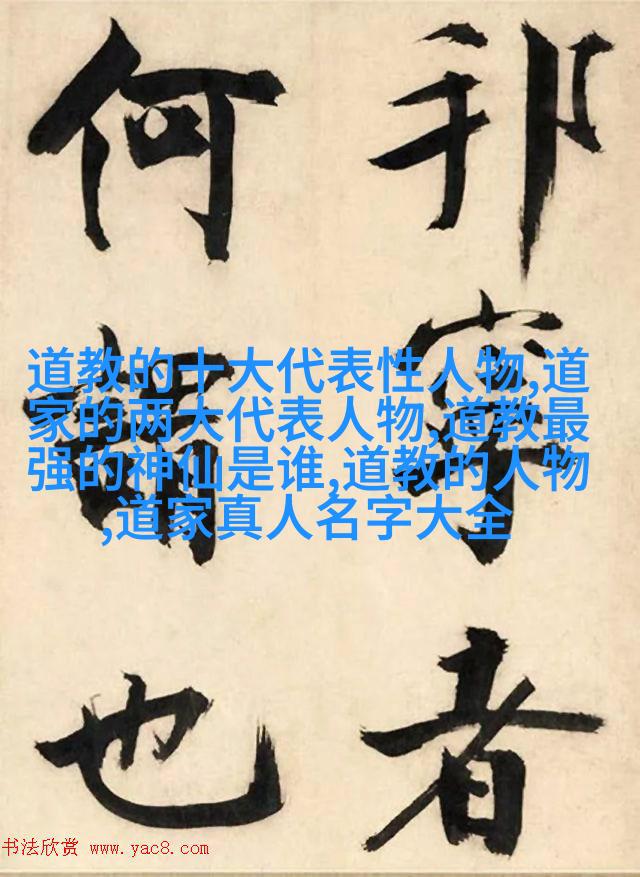 邦寧者
何謂也
道教的十大代表性人物,道
家的两大代表人物,道教最
强的神仙是谁,道教的人物
,道家真人名字大全
书法欣赏 www.yac8.com